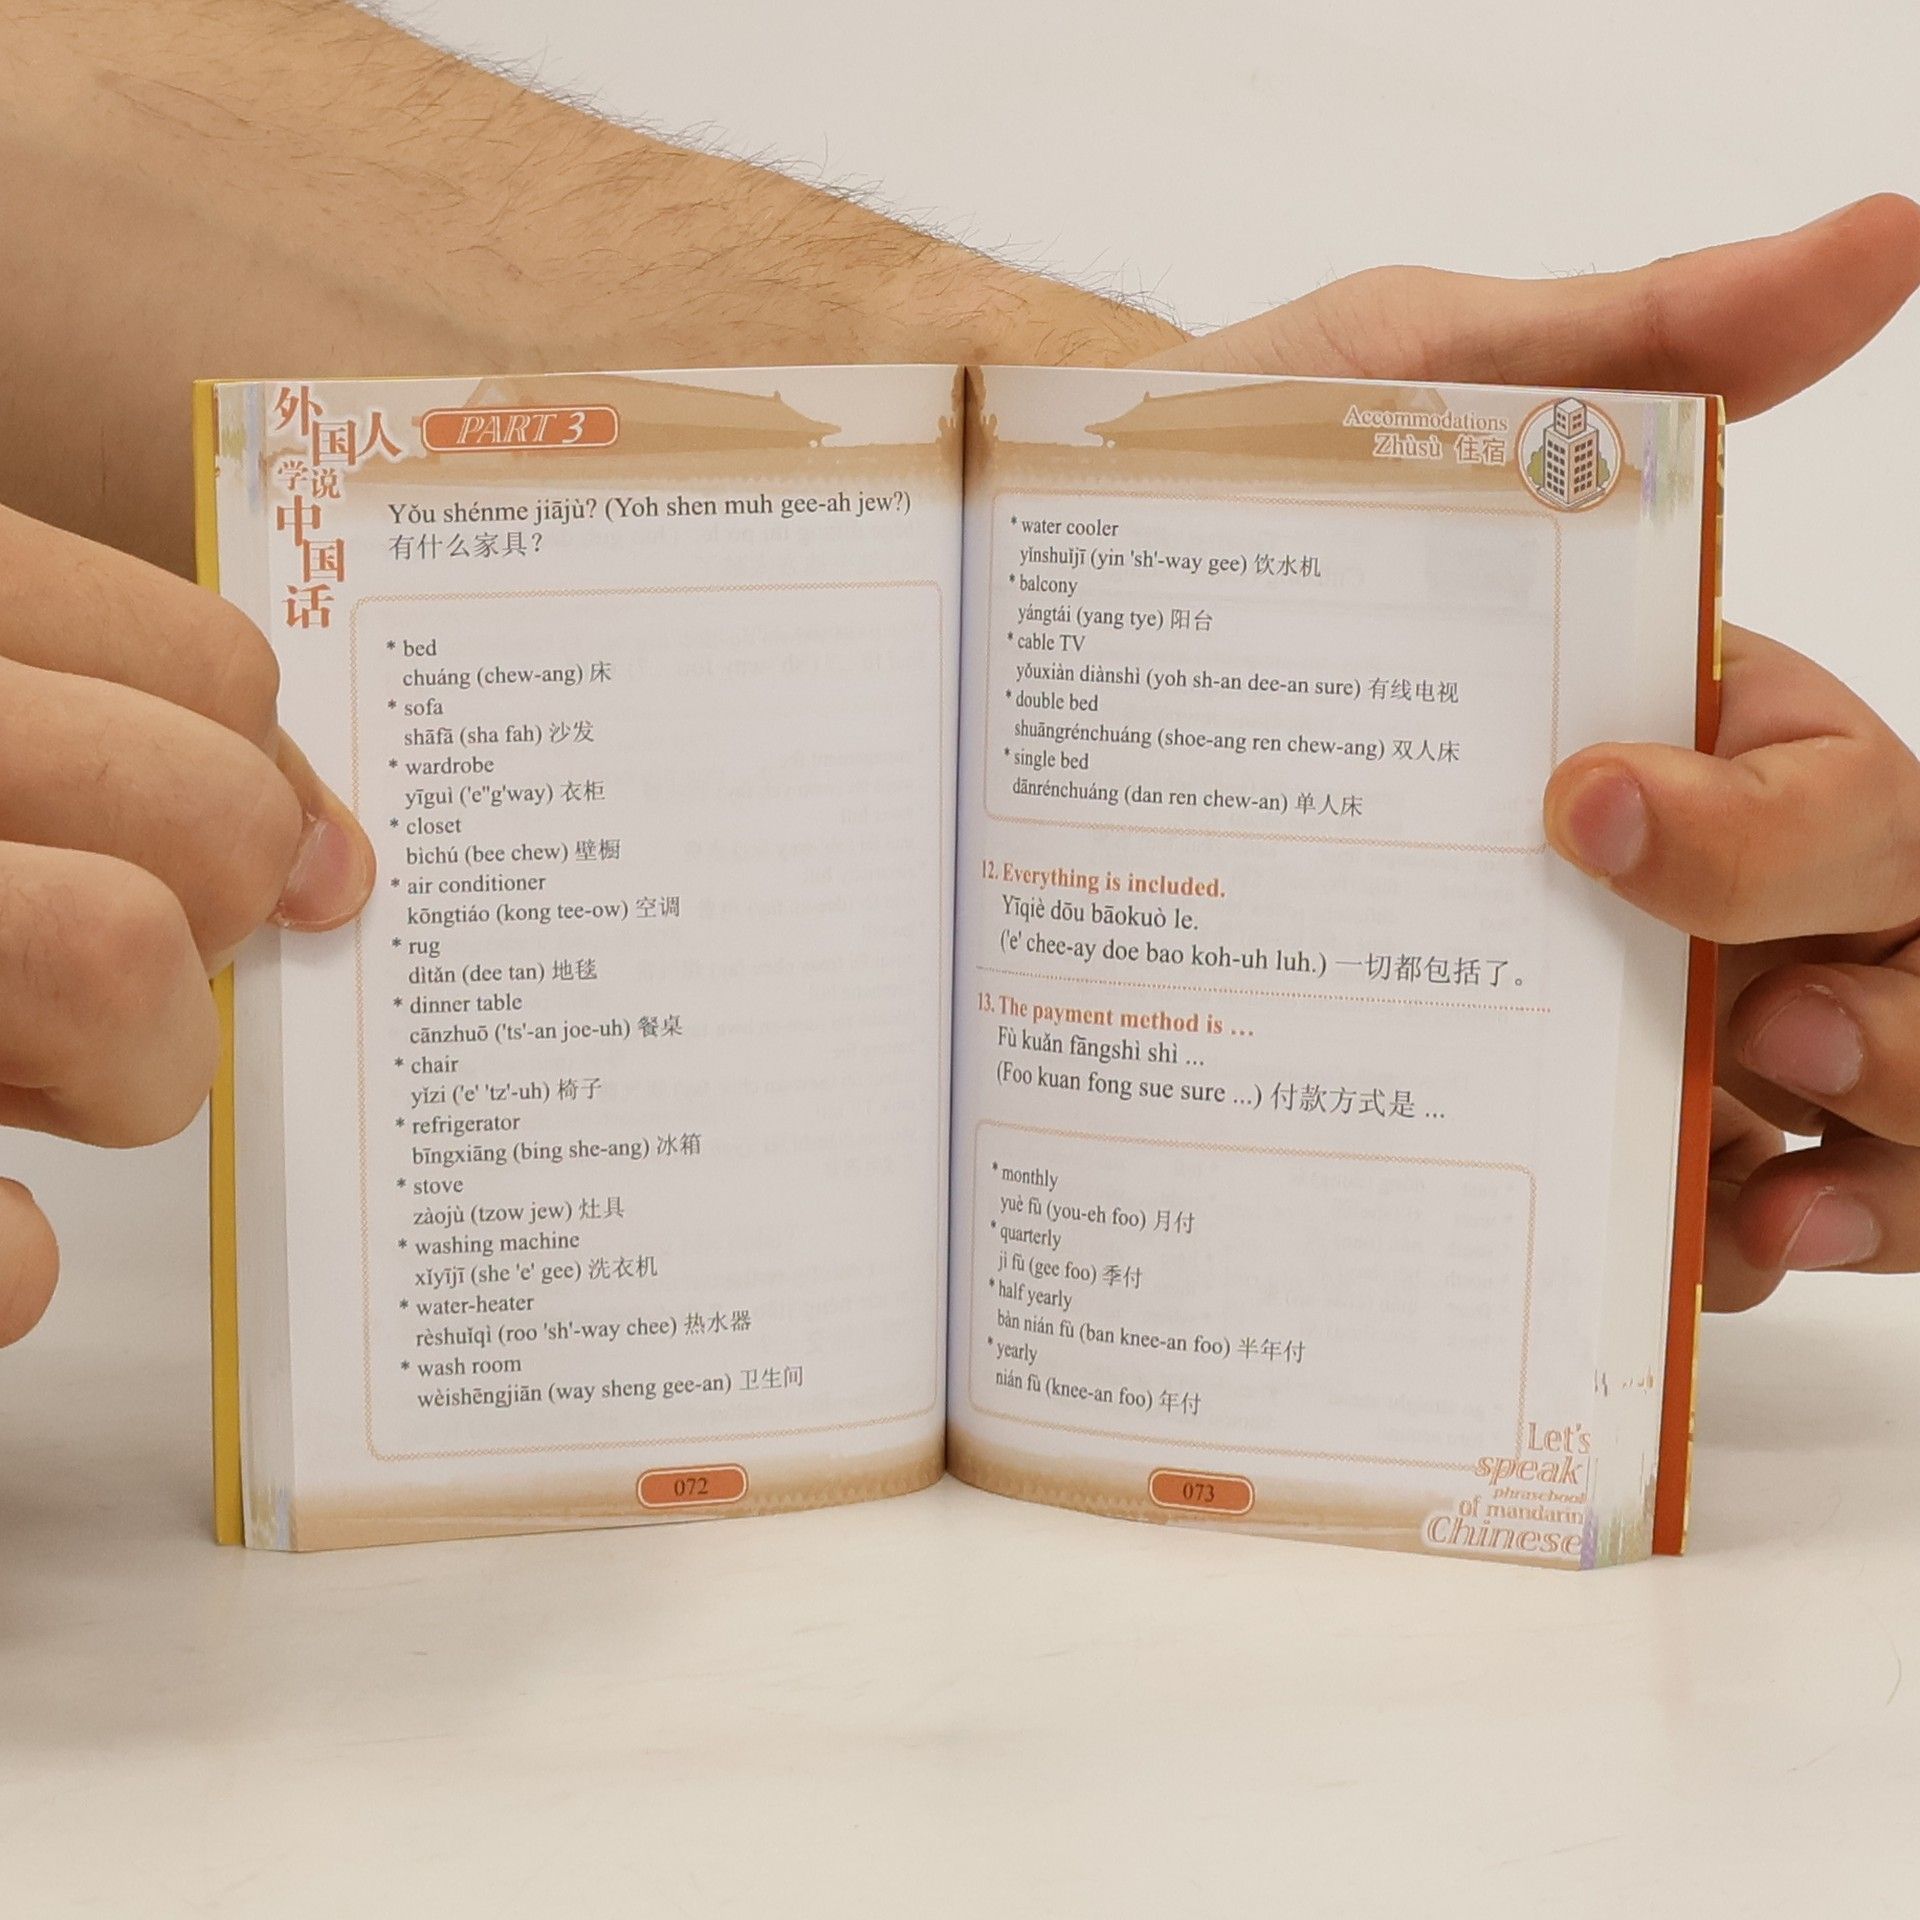 外国人
学说
中国
话
PART 3
Yǒu shénme jiājù? (Yoh shen muh gee-ah jew?)
有什么家具?
* bed
chuáng (chew-ang) 床
* sofa
shāfā (sha fah) 沙发
* wardrobe
yīguì ('e''g'way) 衣柜
* closet
bìchú (bee chew) 壁橱
* air conditioner
kōngtiáo (kong tee-ow) 空调
* rug
dìtǎn (dee tan) 地毯
* dinner table
cānzhuō ('ts'-an joe-uh) 餐桌
* chair
yǐzi ('e' 'tz'-uh) 椅子
* refrigerator
bīngxiāng (bing she-ang) 冰箱
* stove
zàojù (tzow jew) 灶具
* washing machine
xǐyījī (she 'e' gee) 洗衣机
* water-heater
rèshuǐqì (roo 'sh'-way chee) 热水器
* wash room
wèishēngjiān (way sheng gee-an) 卫生间
072
Accommodations
Zhùsù 住宿
* water cooler
yǐnshuǐjī (yin 'sh'-way gee) 饮水机
* balcony
yángtái (yang tye) 阳台
* cable TV
yǒuxiàn diànshì (yoh sh-an dee-an sure) 有线电视
* double bed
shuāngrénchuáng (shoe-ang ren chew-ang) 双人床
* single bed
dānrénchuáng (dan ren chew-an) 单人床
12. Everything is included.
Yīqiè dōu bāokuò le.
('e' chee-ay doe bao koh-uh luh.) 一切都包括了。
13. The payment method is ...
Fù kuǎn fāngshì shì ...
(Foo kuan fong sue sure ...) 付款方式是 ...
* monthly
yuè fù (you-eh foo) 月付
* quarterly
jì fù (gee foo) 季付
* half yearly
bàn nián fù (ban knee-an foo) 半年付
* yearly
nián fù (knee-an foo) 年付
073
Let's
speak
phrasebook
of mandarin
Chinese